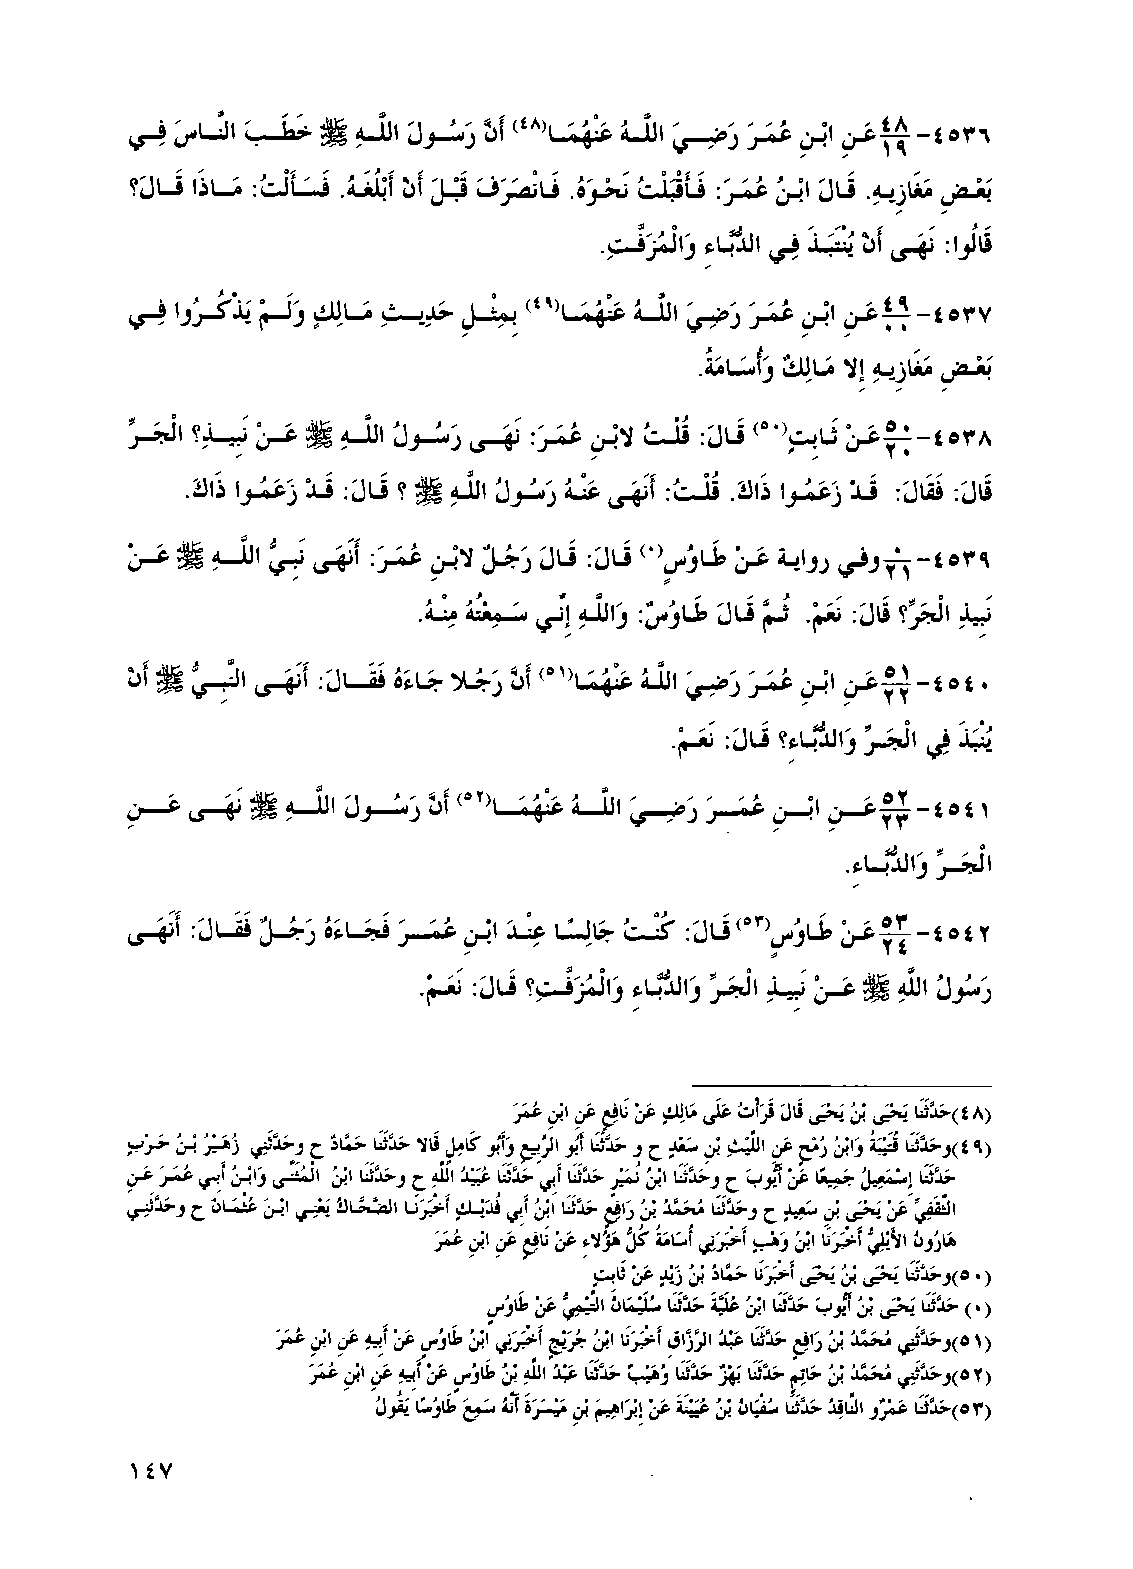 ٤٥٣٦- ٤٨/١٩ عَنِ ابْنِ عُمَرَ رَضِيَ اللَّهُ عَنْهُمَا(٤٨) أَنَّ رَسُولَ اللَّهِ ﷺ خَطَبَ النَّاسَ فِي
بَعْضِ مَغَازِيهِ. قَالَ ابْنُ عُمَرَ: فَأَقْبَلْتُ نَحْوَهُ. فَانْصَرَفَ قَبْلَ أَنْ أَبْلُغَهُ. فَسَأَلْتُ: مَاذَا قَالَ؟
قَالُوا: نَهَى أَنْ يُنْتَبَذَ فِي الدُّبَّاءِ وَالْمُزَفَّتِ.
٤٥٣٧- ٤٩/٠٠ عَنِ ابْنِ عُمَرَ رَضِيَ اللَّهُ عَنْهُمَا(٤٩) بِمِثْلِ حَدِيثِ مَالِكٍ وَلَمْ يَذْكُرُوا فِي
بَعْضِ مَغَازِيهِ إِلا مَالِكٌ وَأُسَامَةُ.
٤٥٣٨- ٥٠/٢٠ عَنْ ثَابِتٍ(٥٠) قَالَ: قُلْتُ لابْنِ عُمَرَ: نَهَى رَسُولُ اللَّهِ ﷺ عَنْ نَبِيذِ؟ الْجَرِّ
قَالَ: فَقَالَ: قَدْ زَعَمُوا ذَاكَ. قُلْتُ: أَنَهَى عَنْهُ رَسُولُ اللَّهِ ﷺ ؟ قَالَ: قَدْ زَعَمُوا ذَاكَ.
٤٥٣٩- ٠/٢١ وفي رواية عَنْ طَاوُسٍ(٠) قَالَ: قَالَ رَجُلٌ لابْنِ عُمَرَ: أَنَهَى نَبِيُّ اللَّهِ ﷺ عَنْ
نَبِيذِ الْجَرِّ؟ قَالَ: نَعَمْ. ثُمَّ قَالَ طَاوُسٌ: وَاللَّهِ إِنِّي سَمِعْتُهُ مِنْهُ.
٤٥٤٠- ٥١/٢٢ عَنِ ابْنِ عُمَرَ رَضِيَ اللَّهُ عَنْهُمَا(٥١) أَنَّ رَجُلا جَاءَهُ فَقَالَ: أَنَهَى النَّبِيُّ ﷺ أَنْ
يُنْبَذَ فِي الْجَرِّ وَالدُّبَّاءِ؟ قَالَ: نَعَمْ.
٤٥٤١- ٥٢/٢٣ عَنِ ابْنِ عُمَرَ رَضِيَ اللَّهُ عَنْهُمَا(٥٢) أَنَّ رَسُولَ اللَّهِ ﷺ نَهَى عَنِ
الْجَرِّ وَالدُّبَّاءِ.
٤٥٤٢- ٥٣/٢٤ عَنْ طَاوُسٍ(٥٣) قَالَ: كُنْتُ جَالِسًا عِنْدَ ابْنِ عُمَرَ فَجَاءَهُ رَجُلٌ فَقَالَ: أَنَهَى
رَسُولُ اللَّهِ ﷺ عَنْ نَبِيذِ الْجَرِّ وَالدُّبَّاءِ وَالْمُزَفَّتِ؟ قَالَ: نَعَمْ.
(٤٨)حَدَّثَنَا يَحْيَى بْنُ يَحْيَى قَالَ قَرَأْتُ عَلَى مَالِكٍ عَنْ نَافِعٍ عَنِ ابْنِ عُمَرَ
(٤٩)وحَدَّثَنَا قُتَيْبَةُ وَابْنُ رُمْحٍ عَنِ اللَّيْثِ بْنِ سَعْدٍ ح و حَدَّثَنَا أَبُو الرَّبِيعِ وَأَبُو كَامِلٍ قَالا حَدَّثَنَا حَمَّادٌ ح وحَدَّثَنِي زُهَيْرُ بْنُ حَرْبٍ
حَدَّثَنَا إِسْمَعِيلُ جَمِيعًا عَنْ أَيُّوبَ ح وحَدَّثَنَا ابْنُ نُمَيْرٍ حَدَّثَنَا أَبِي حَدَّثَنَا عُبَيْدُ اللَّهِ ح وحَدَّثَنَا ابْنُ الْمُثَنَّى وَابْنُ أَبِي عُمَرَ عَنِ
الثَّقَفِيِّ عَنْ يَحْيَى بْنِ سَعِيدٍ ح وحَدَّثَنَا مُحَمَّدُ بْنُ رَافِعٍ حَدَّثَنَا ابْنُ أَبِي فُدَيْكٍ أَخْبَرَنَا الضَّحَّاكُ يَعْنِي ابْنَ عُثْمَانَ ح وحَدَّثَنِي
هَارُونُ الأَيْلِيُّ أَخْبَرَنَا ابْنُ وَهْبٍ أَخْبَرَنِي أُسَامَةُ كُلُّ هَؤُلاءِ عَنْ نَافِعٍ عَنِ ابْنِ عُمَرَ
(٥٠)وحَدَّثَنَا يَحْيَى بْنُ يَحْيَى أَخْبَرَنَا حَمَّادُ بْنُ زَيْدٍ عَنْ ثَابِتٍ
(٠) حَدَّثَنَا يَحْيَى بْنُ أَيُّوبَ حَدَّثَنَا ابْنُ عُلَيَّةَ حَدَّثَنَا سُلَيْمَانُ التَّيْمِيُّ عَنْ طَاوُسٍ
(٥١)وحَدَّثَنِي مُحَمَّدُ بْنُ رَافِعٍ حَدَّثَنَا عَبْدُ الرَّزَّاقِ أَخْبَرَنَا ابْنُ جُرَيْجٍ أَخْبَرَنِي ابْنُ طَاوُسٍ عَنْ أَبِيهِ عَنِ ابْنِ عُمَرَ
(٥٢)وحَدَّثَنِي مُحَمَّدُ بْنُ حَاتِمٍ حَدَّثَنَا بَهْزٌ حَدَّثَنَا وُهَيْبٌ حَدَّثَنَا عَبْدُ اللَّهِ بْنُ طَاوُسٍ عَنْ أَبِيهِ عَنِ ابْنِ عُمَرَ
(٥٣)حَدَّثَنَا عَمْرٌو النَّاقِدُ حَدَّثَنَا سُفْيَانُ بْنُ عُيَيْنَةَ عَنْ إِبْرَاهِيمَ بْنِ مَيْسَرَةَ أَنَّهُ سَمِعَ طَاوُسًا يَقُولُ
١٤٧